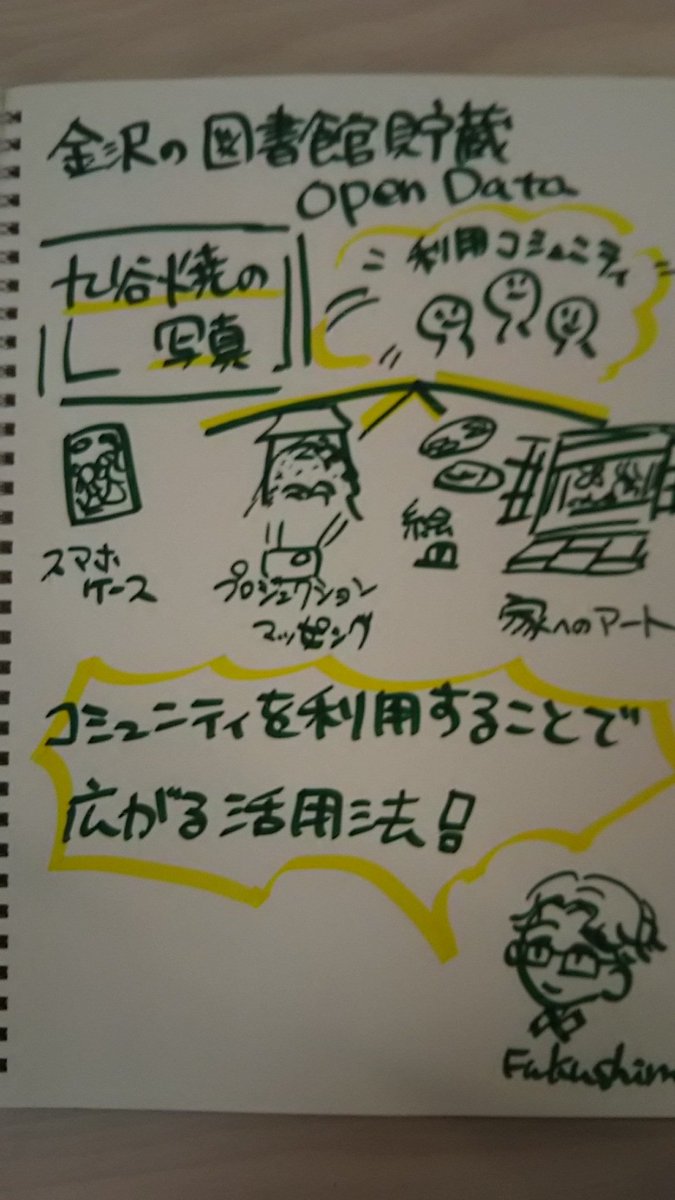 金沢の図書館貯蔵
Open Data
九谷焼の
写真
利用コミュニティ
スマホ
ケース
プロジェクション
マッピング
絵
皿
家へのアート
コミュニティを利用することで
広がる活用法!!
Fukushim